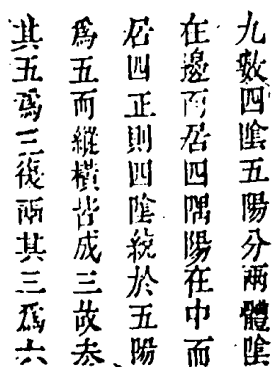 九數四陰五陽分兩體陰
在邊而居四隅陽在中而
居四正則四陰統於五陽
爲五而縱橫皆成三故叅
其五爲三復兩其三爲六